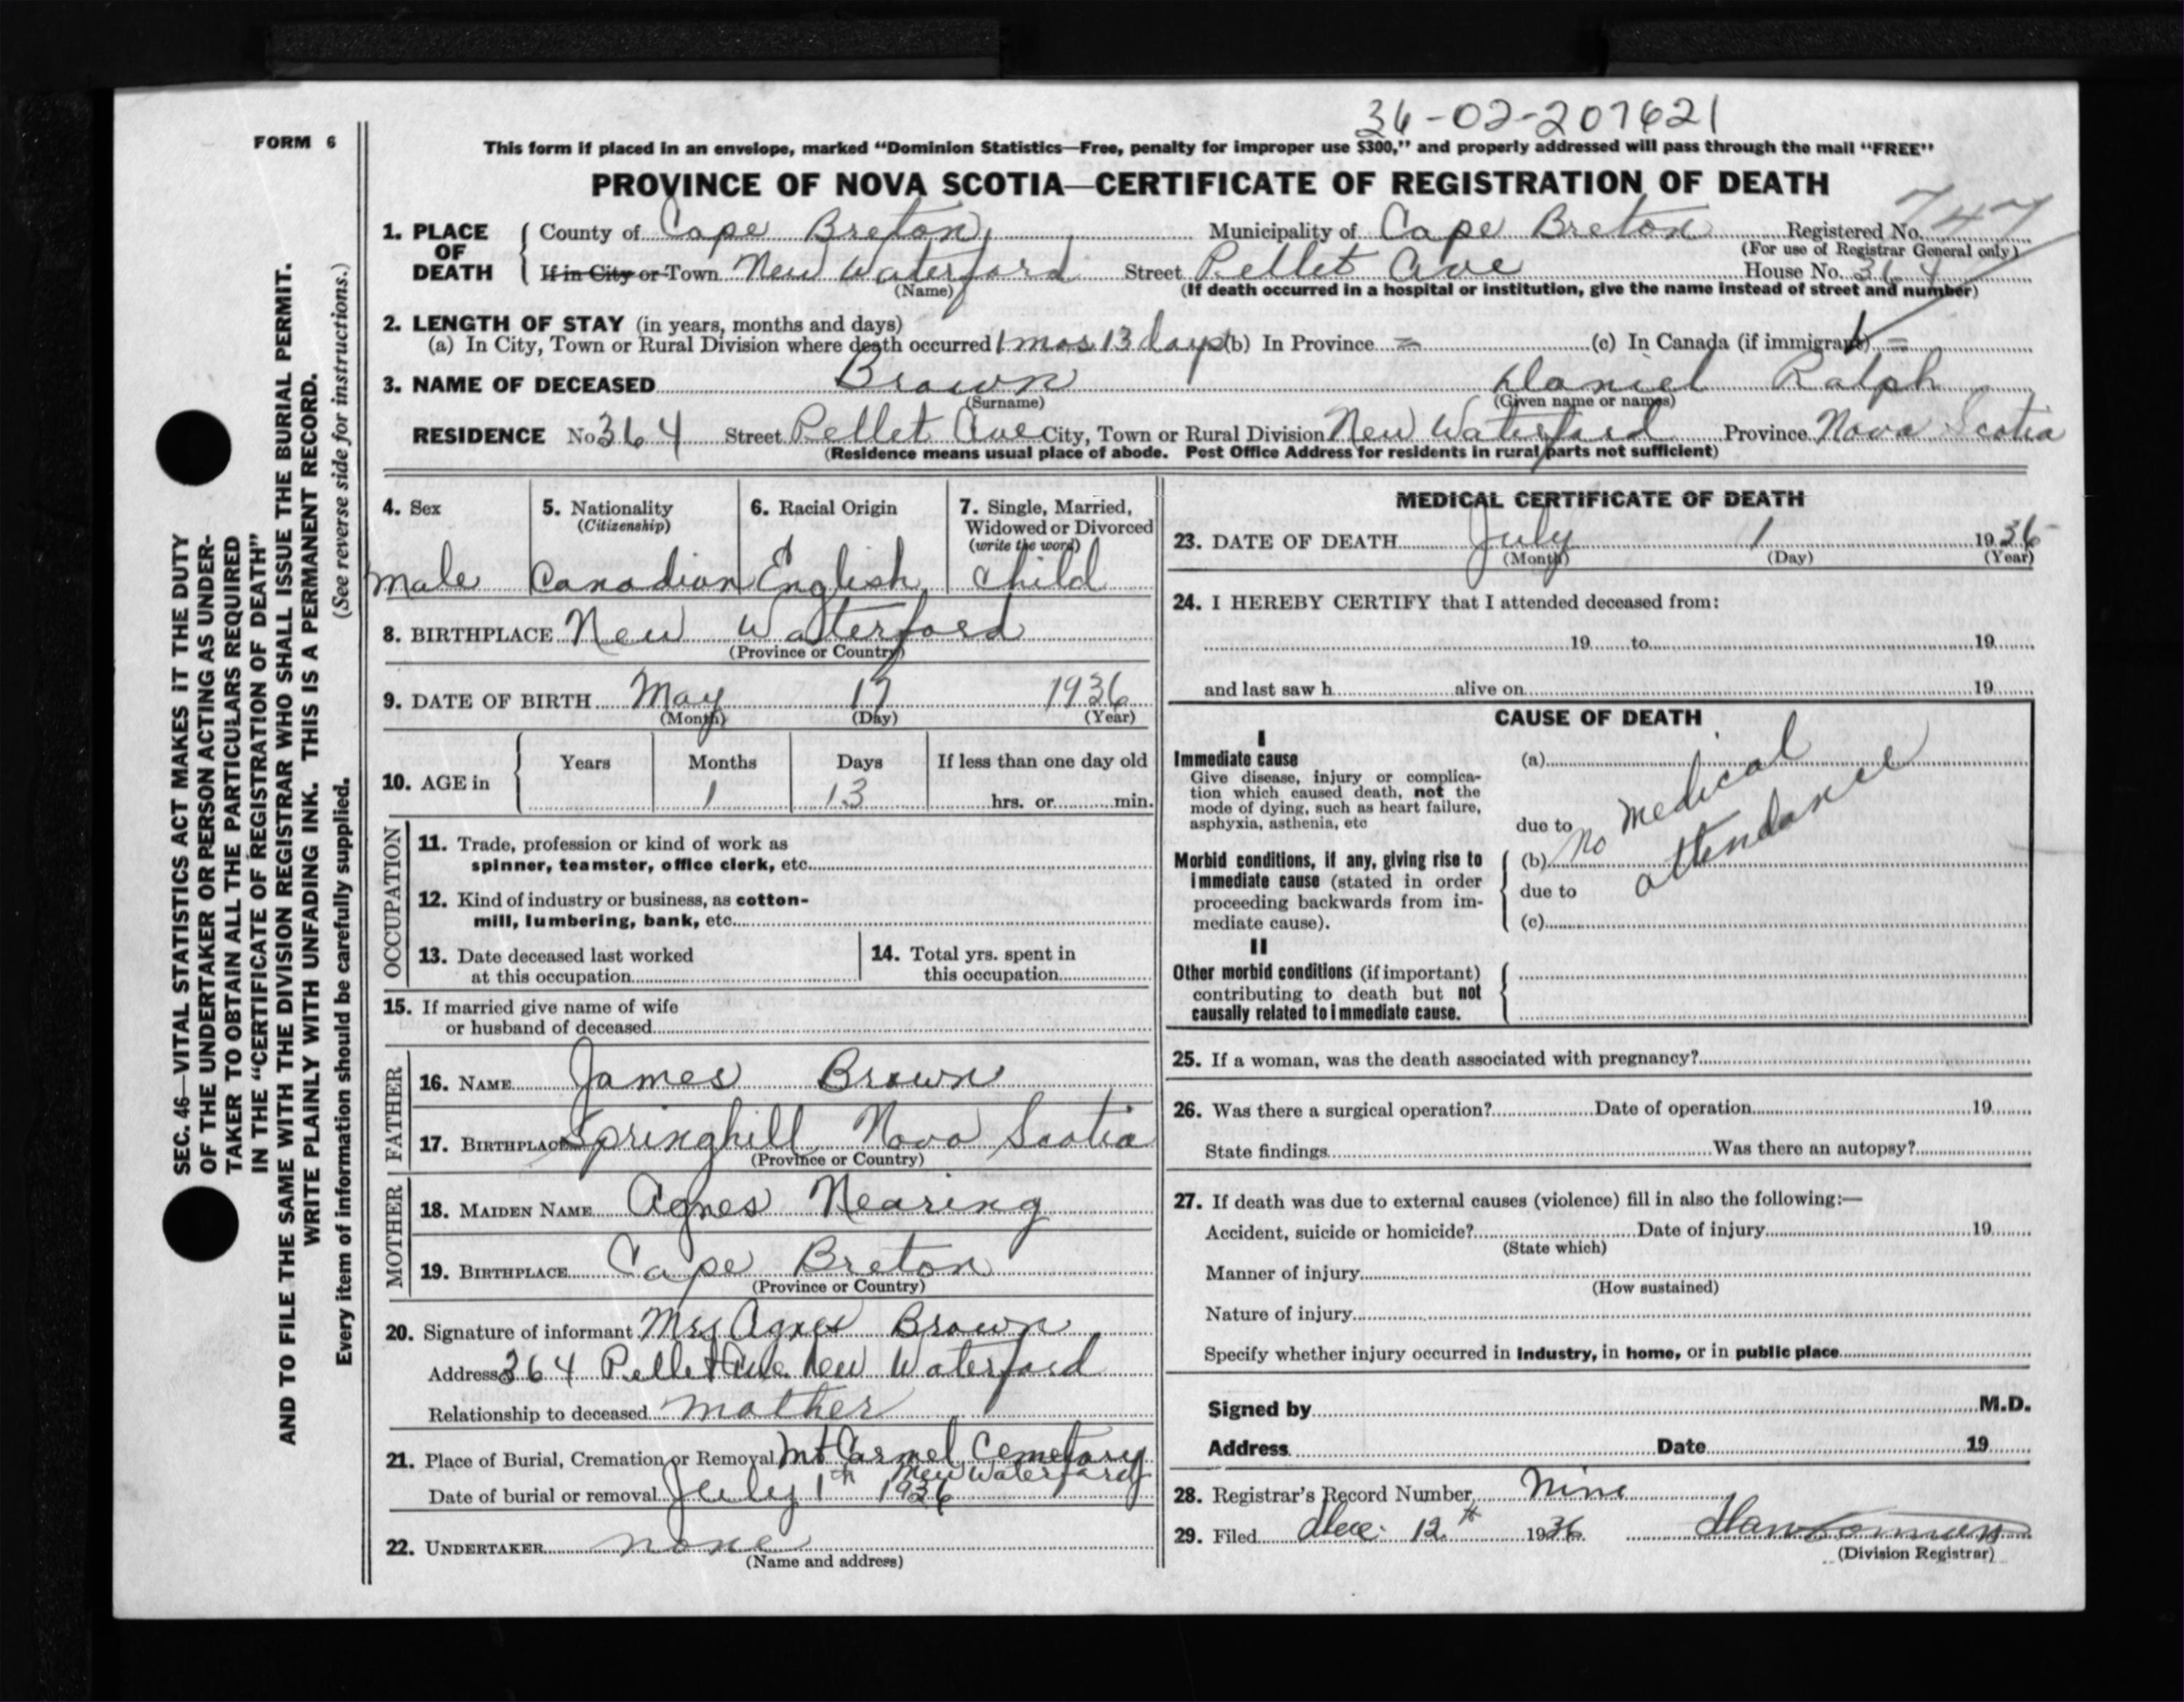 36-02-207621
FORM 6
This form if placed in an envelope, marked "Dominion Statistics—Free, penalty for improper use $300," and properly addressed will pass through the mail "FREE"
PROVINCE OF NOVA SCOTIA—CERTIFICATE OF REGISTRATION OF DEATH
1. PLACE OF DEATH County of Cape Breton Municipality of Cape Breton Registered No. 747
(For use of Registrar General only)
If in City or Town New Waterford Street Pellet Ave House No. 364
(Name) (If death occurred in a hospital or institution, give the name instead of street and number)
2. LENGTH OF STAY (in years, months and days)
(a) In City, Town or Rural Division where death occurred 1 mos 13 days (b) In Province = (c) In Canada (if immigrant) =
3. NAME OF DECEASED Brown Daniel Ralph
(Surname) (Given name or names)
RESIDENCE No 364 Street Pellet Ave City, Town or Rural Division New Waterford Province Nova Scotia
(Residence means usual place of abode. Post Office Address for residents in rural parts not sufficient)
4. Sex 5. Nationality 6. Racial Origin 7. Single, Married,
(Citizenship) Widowed or Divorced
(write the word)
Male Canadian English child
8. BIRTHPLACE New Waterford
(Province or Country)
9. DATE OF BIRTH May 17 1936
(Month) (Day) (Year)
10. AGE in Years Months Days If less than one day old
1 13 hrs. or min.
OCCUPATION
11. Trade, profession or kind of work as
spinner, teamster, office clerk, etc.
12. Kind of industry or business, as cotton-
mill, lumbering, bank, etc.
13. Date deceased last worked
at this occupation
14. Total yrs. spent in
this occupation
15. If married give name of wife
or husband of deceased
FATHER
16. NAME James Brown
17. BIRTHPLACE Springhill Nova Scotia
(Province or Country)
MOTHER
18. MAIDEN NAME Agnes Nearing
19. BIRTHPLACE Cape Breton
(Province or Country)
20. Signature of informant Mrs Agnes Brown
Address 364 Pellet Ave. New Waterford
Relationship to deceased mother
21. Place of Burial, Cremation or Removal Mt Carmel Cemetary
New Waterford
Date of burial or removal July 1th 1936
22. UNDERTAKER none
(Name and address)
MEDICAL CERTIFICATE OF DEATH
23. DATE OF DEATH July 1 1936
(Month) (Day) (Year)
24. I HEREBY CERTIFY that I attended deceased from:
19 to 19
and last saw h alive on 19
CAUSE OF DEATH
I
Immediate cause
Give disease, injury or complica-
tion which caused death, not the
mode of dying, such as heart failure,
asphyxia, asthenia, etc
(a)
due to
Morbid conditions, if any, giving rise to
immediate cause (stated in order
proceeding backwards from im-
mediate cause).
(b)
due to
(c)
No medical
attendance
II
Other morbid conditions (if important)
contributing to death but not
causally related to immediate cause.
25. If a woman, was the death associated with pregnancy?
26. Was there a surgical operation? Date of operation 19
State findings Was there an autopsy?
27. If death was due to external causes (violence) fill in also the following:—
Accident, suicide or homicide? Date of injury 19
(State which)
Manner of injury
(How sustained)
Nature of injury
Specify whether injury occurred in Industry, in home, or in public place
Signed by M.D.
Address Date 19
28. Registrar's Record Number Nine
29. Filed Dec. 12th 1936
(Division Registrar)
SEC. 46—VITAL STATISTICS ACT MAKES IT THE DUTY
OF THE UNDERTAKER OR PERSON ACTING AS UNDER-
TAKER TO OBTAIN ALL THE PARTICULARS REQUIRED
IN THE "CERTIFICATE OF REGISTRATION OF DEATH"
AND TO FILE THE SAME WITH THE DIVISION REGISTRAR WHO SHALL ISSUE THE BURIAL PERMIT.
WRITE PLAINLY WITH UNFADING INK. THIS IS A PERMANENT RECORD.
Every item of information should be carefully supplied. (See reverse side for instructions.)